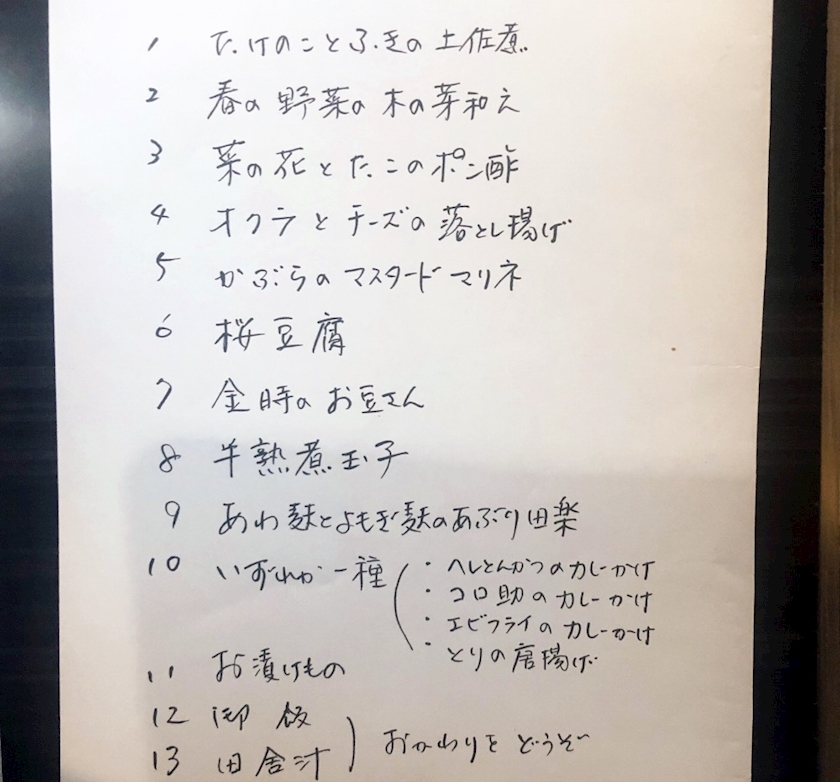 1 たけのことふきの土佐煮
2 春の野菜の木の芽和え
3 菜の花とたこのポン酢
4 オクラとチーズの落とし揚げ
5 かぶらのマスタードマリネ
6 桜豆腐
7 金時のお豆さん
8 半熟煮玉子
9 あわ麸とよもぎ麸のあぶり田楽
10 いずれか一種
・ヘレとんかつのカレーかけ
・コロ助のカレーかけ
・エビフライのカレーかけ
・とりの唐揚げ
11 お漬けもの
12 御飯
13 田舎汁
おかわりをどうぞ